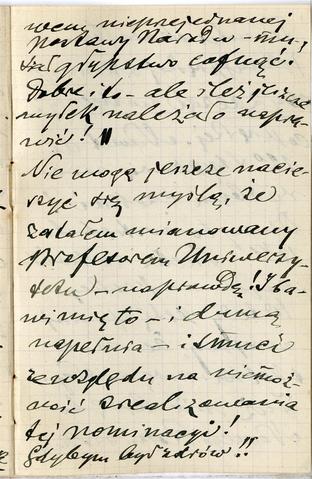 wem nieprzejednanej
postawy Narodu – mu-
siał głupstwo cofnąć.
Dobre i to – ale ileż jeszcze
myłek należało napra-
wić!
Nie mogę jeszcze nacie-
szyć się myślą, że
zostałem mianowany
Profesorem Uniwersy-
tetu – naprawdę! I ba-
wi mię to – i dumą
napełnia – i smuci
ze względu na niemoż-
ność zrealizowania
tej nominacji!
Gdybym był zdrów!!